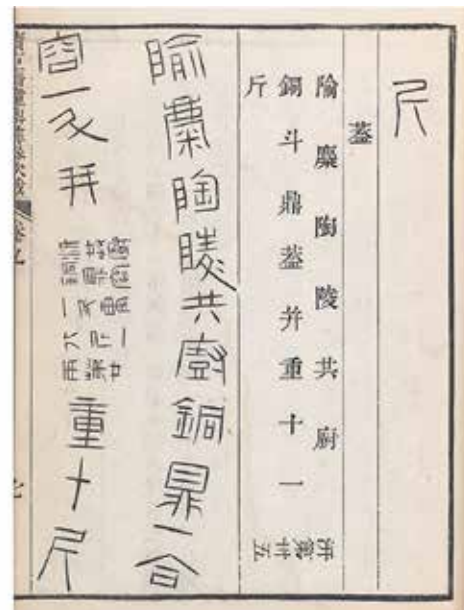 斤
蓋
隃麋陶陵共廚
銅斗鼎蓋并重十一
斤
隃麋陶陵共廚銅鼎一合
容一斗并重十斤